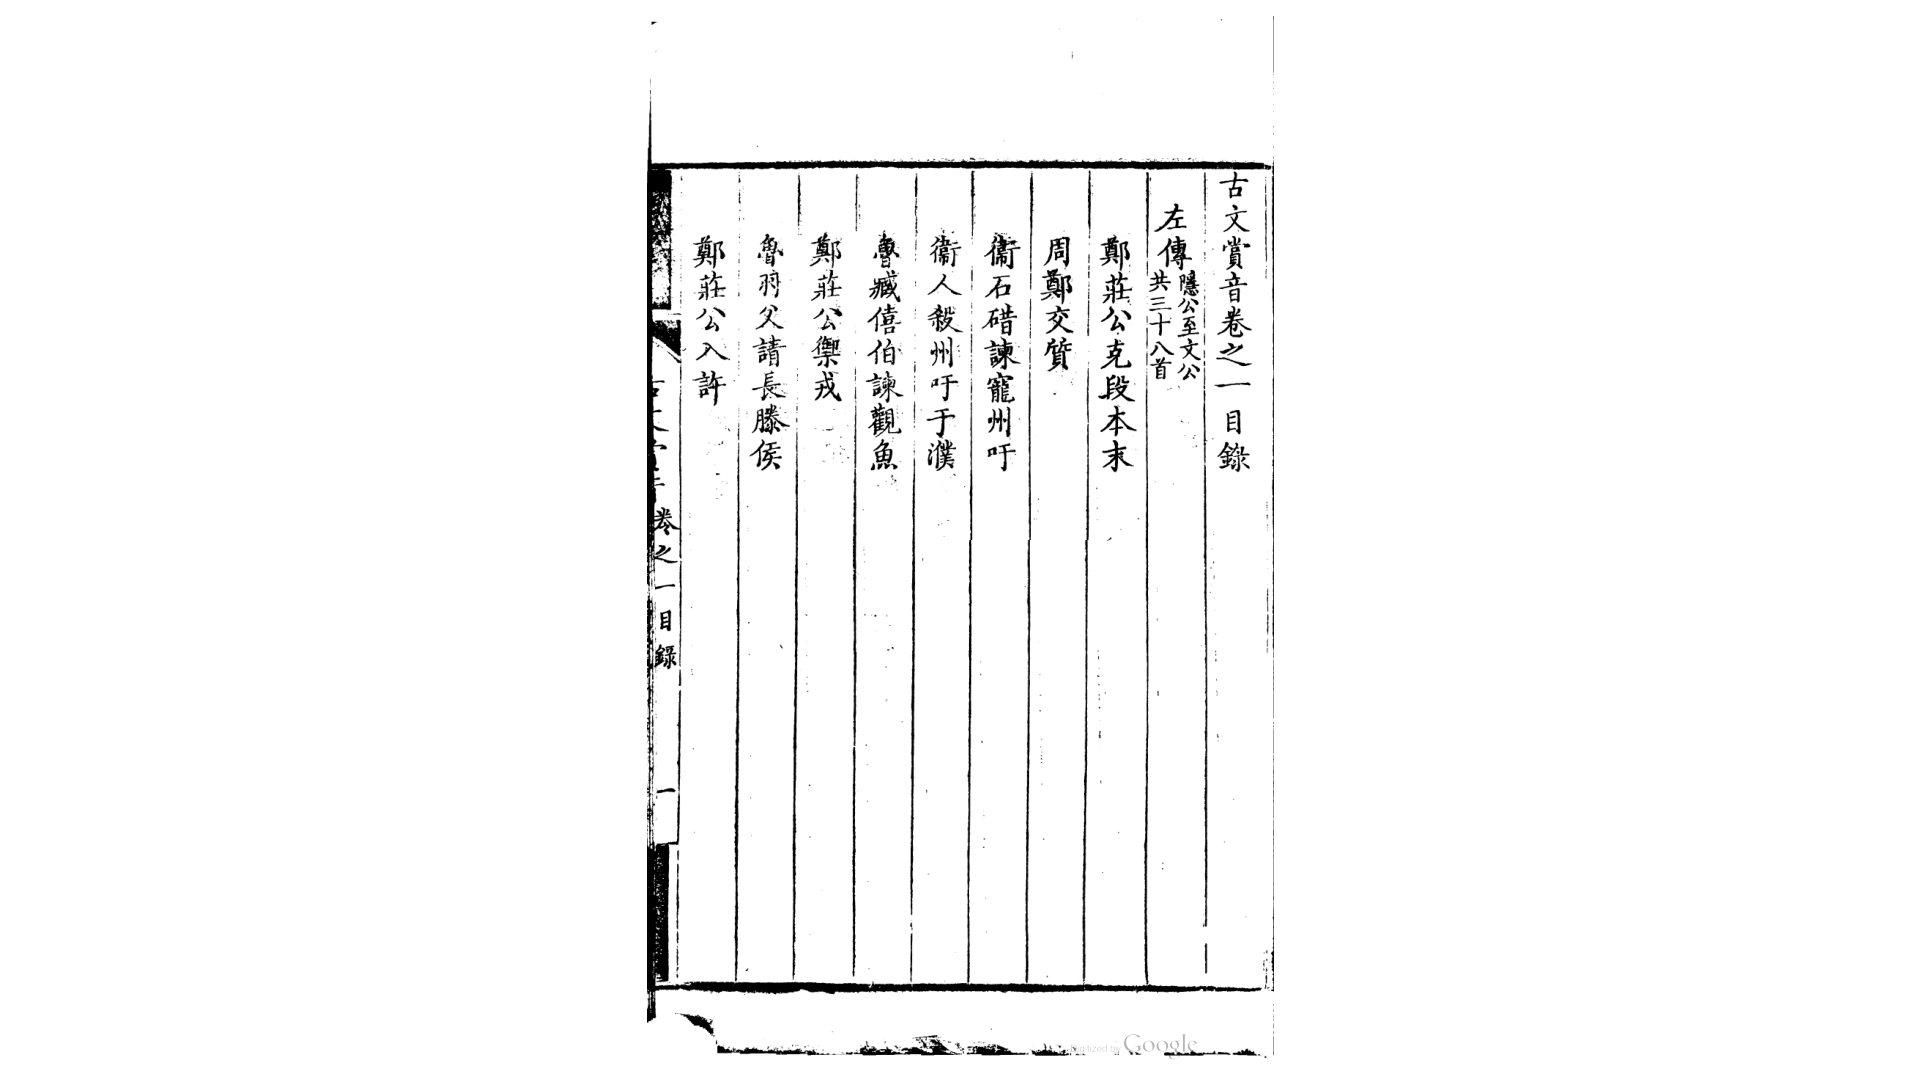 古文賞音卷之一目錄
左傳隱公至文公
共三十八首
鄭莊公克段本末
周鄭交質
衞石碏諫寵州吁
衞人殺州吁于濮
魯臧僖伯諫觀魚
鄭莊公禦戎
魯羽父請長滕侯
鄭莊公入許
卷之一目錄
一
Digitized by Google